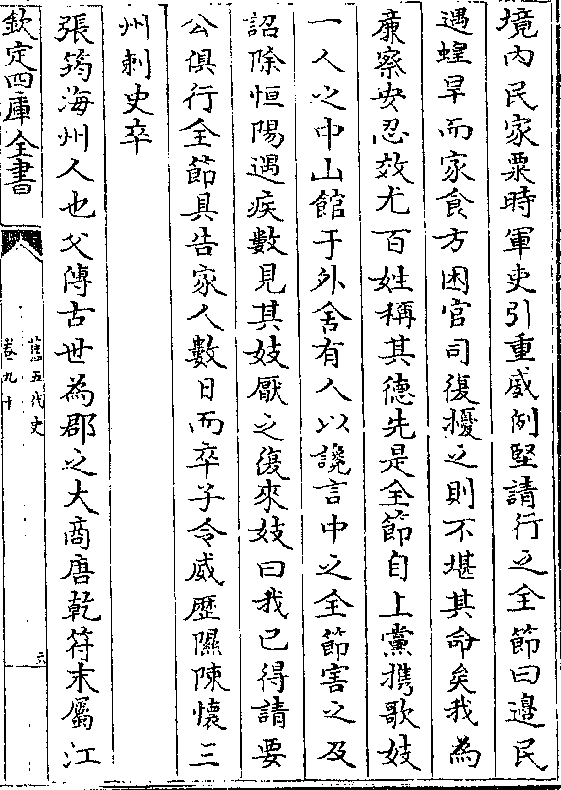 境內民家粟時軍吏引重威例堅請行之全節曰邊民
遇蝗旱而家食方困官司復擾之則不堪其命矣我為
亷察安忍效尤百姓稱其德先是全節自上黨攜歌妓
一人之中山館于外舍有人以讒言中之全節害之及
詔除恒陽遇疾數見其妓厭之復來妓曰我已得請要
公俱行全節具告家人數日而卒子令威歷隰陳懷三
州刺史卒
張筠海州人也父傳古世為郡之大商唐乾符末屬江
欽定四庫全書
舊五代史
卷九十
六